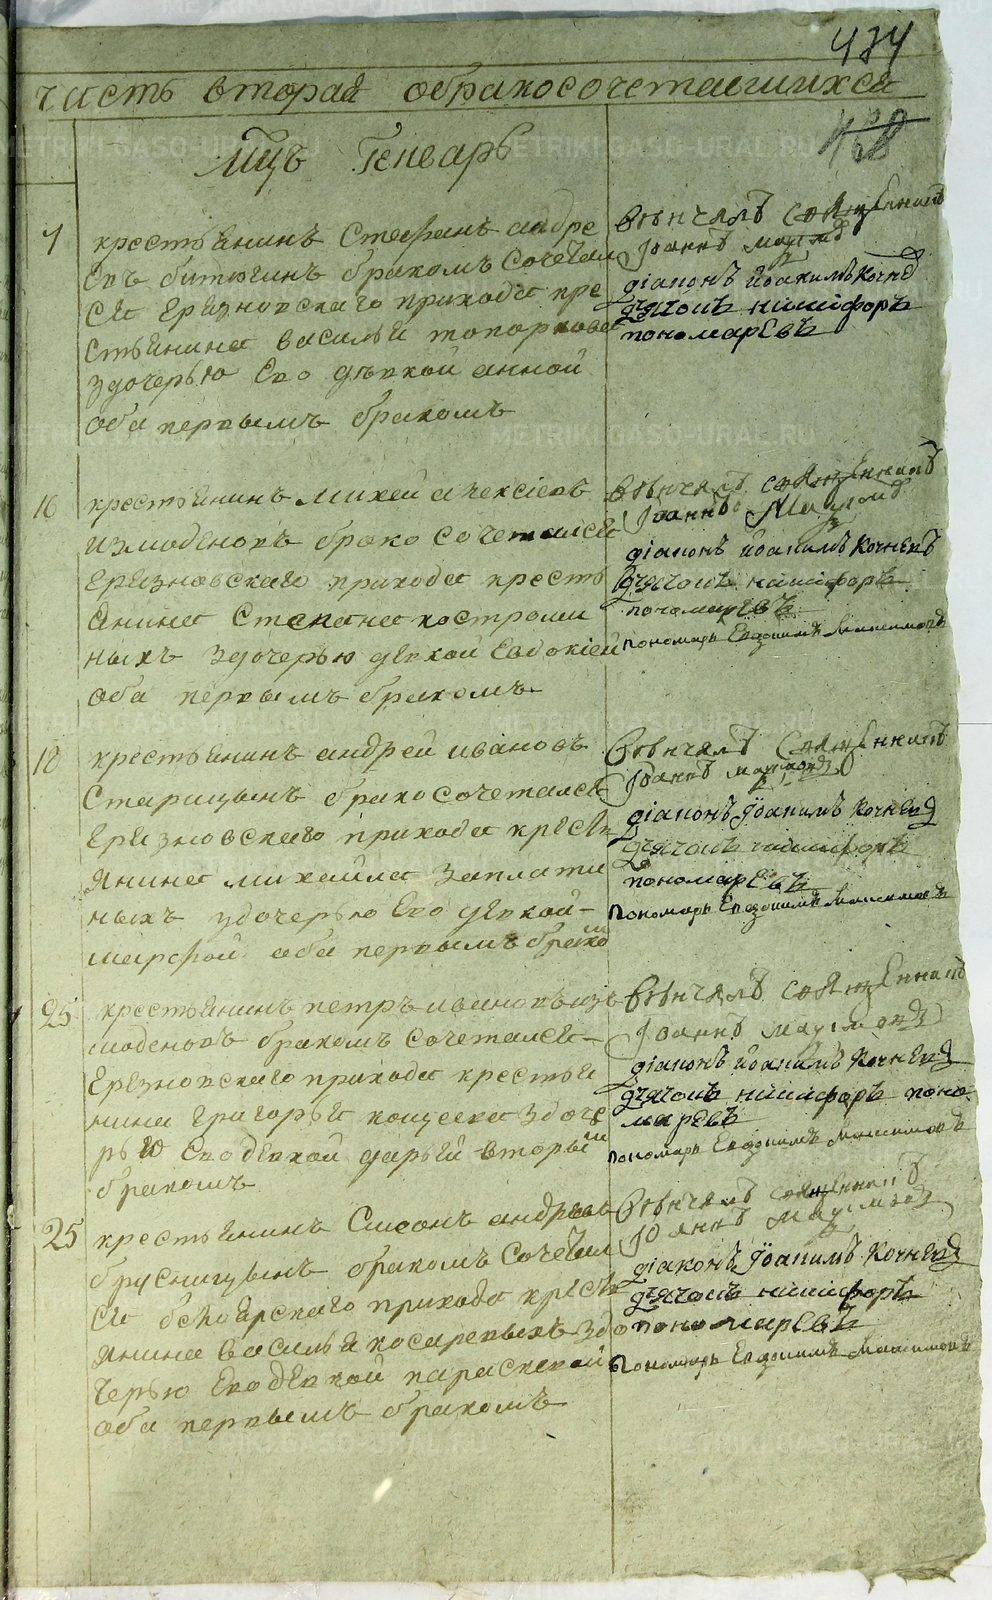 434
часть вторая обракосочетавшихся
438
Мцъ Генварь
7
крестьянинъ Стефанъ андре
евъ битюгинъ бракомъ сочетал
ся Грязновскаго прихода кре
стьянина василья топоркова
здочерью Его девкой анной
оба первымъ бракомъ
Венчалъ священникъ
Іоаннъ
діаконъ Иоакимъ Кочнев
дьячокъ никифоръ
пономаревъ
16
крестьянинъ михей алексіевъ
измоденовъ брако сочетался
Грязновскаго прихода кресть
янина Степана костроми
ныхъ здочерью девкой Евдокіей
оба первымъ бракомъ
Венчалъ священникъ
Іоаннъ
діаконъ иоакимъ Кочневъ
дьячокъ никифоръ
пономаревъ
пономарь Евдокимъ Максимовъ
18
крестьянинъ андрей ивановъ
Старицынъ бракосочетался
Грязновскаго прихода крест
янина михаила Заплати
ныхъ здочерью Его девкой
марфой оба первымъ брако
Венчалъ Священникъ
Іоаннъ
діаконъ Иоакимъ Кочнев
дьячокъ никифоръ
пономаревъ
Пономарь Евдокимъ Максимовъ
25
крестьянинъ петръ ивановъ из
моденовъ бракомъ сочетался
Грязновскаго прихода крестья
нина Григорья кощеева здоче
рью Его девкой дарьей вторым
бракомъ
Венчалъ священникъ
Іоаннъ
діаконъ иоакимъ Кочнев
дьячокъ никифоръ поно
маревъ
пономарь Евдокимъ Максимовъ
25
крестьянинъ Симонъ андреевъ
брусницынъ бракомъ Сочетал
ся белоярскаго прихода кресть
янина василья косаревыхъ здо
черью Его девкой параскевой
оба первымъ бракомъ
Венчалъ священникъ
Іоаннъ
діаконъ Иоакимъ Кочнев
дьячокъ никифоръ
пономаревъ
Пономарь Евдокимъ Максимовъ
METRIKI.GASO-URAL.RU